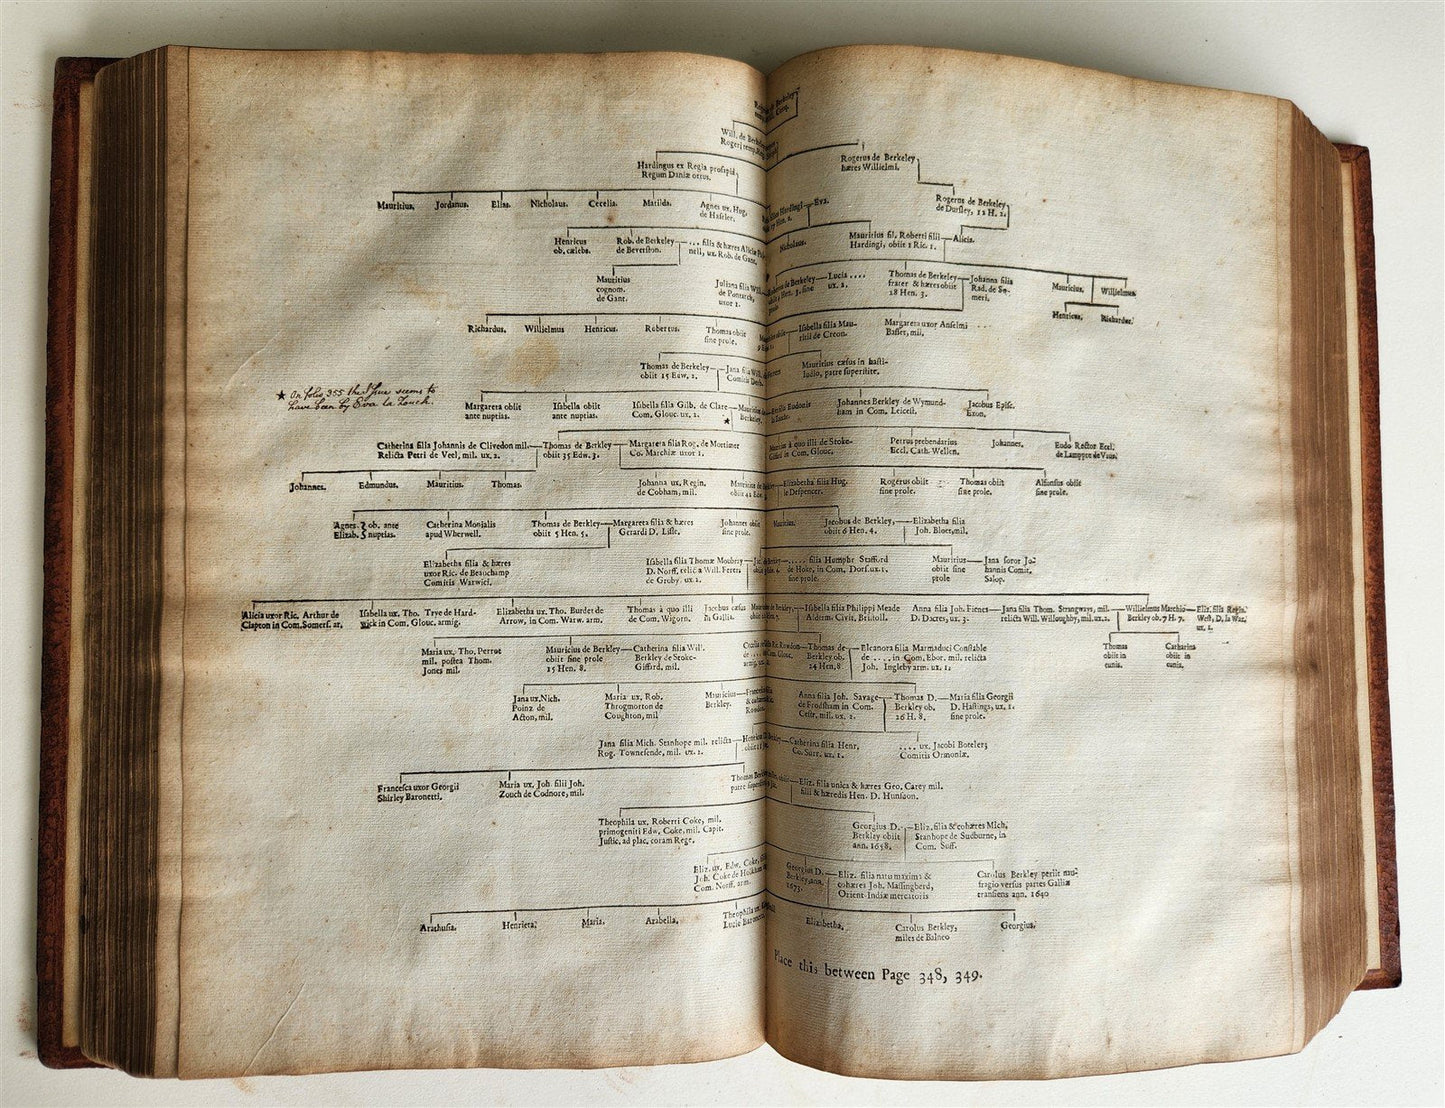 Will. de Berkeley
Rogeri temp.
Hardingus ex Regia prosapia
Regum Daniæ ortus.
Rogerus de Berkeley
hæres Willielmi.
Mauritius. Jordanus. Elias. Nicholaus. Cecelia. Matilda. Agnes ux. Hug.
de Haseler.
Eva.
Rogerus de Berkeley
de Dursley, 12 H. 2.
Henricus
ob. cælebs.
Rob. de Berkeley
de Beverston.
.... filia & hæres Aliciæ
nell, ux. Rob. de Gant.
Nicholaus.
Mauritius fil. Roberti filii
Hardingi, obiit 1 Ric. 1.
Alicia.
Mauritius
cognom.
de Gant.
Juliana filia Will.
de Pontarch,
uxor 1.
de Berkeley
Lucia ....
ux. 1.
Thomas de Berkeley
frater & hæres obiit
28 Hen. 3.
Johanna filia
Rad. de So-
meri.
Mauricius. Willielmus.
Henricus. Richardus.
Richardus. Willielmus Henricus. Robertus. Thomas obiit
sine prole.
Isabella filia Mau-
ritii de Creon.
Margareta uxor Anselmi
Basset, mil.
Thomas de Berkeley
obiit 15 Edw. 2.
Jana filia Will.
Comitis Derb.
Mauritius cæsus in hasti-
ludio, patre superstite.
★ On folio 355 the Issue seems to
have been by Eva la Zouch.
Margareta obiit
ante nuptias.
Isabella obiit
ante nuptias.
Isabella filia Gilb. de Clare
Com. Glouc. ux. 1.
★
Berkeley.
Eudonis
Johannes Berkeley de Wymund-
ham in Com. Leicest.
Jacobus Episc.
Exon.
Catherina filia Johannis de Clivedon mil.
Relicta Petri de Veel, mil. ux. 2.
Thomas de Berkley
obiit 35 Edw. 3.
Margareta filia Rog. de Mortimer
Co. Marchiæ uxor 1.
à quo illi de Stoke-
Giffard in Com. Glouc.
Petrus prebendarius
Eccl. Cath. Wellen.
Johannes.
Eudo Rector Eccl.
Johannes. Edmundus. Mauritius. Thomas.
Johanna ux. Regin.
de Cobham, mil.
Elizabetha filia Hug.
le Despencer.
Rogerus obiit
sine prole.
Thomas obiit
sine prole.
Alfonsus obiit
sine prole.
Agnes. } ob. ante
Elizab. } nuptias.
Catherina Monialis
apud Wherwell.
Thomas de Berkley
obiit 5 Hen. 5.
Margareta filia & hæres
Gerardi D. Lisle.
Johannes obiit
sine prole.
Mauritius.
Jacobus de Berkeley,
obiit 6 Hen. 4.
Elizabetha filia
Joh. Bloet, mil.
Elizabetha filia & hæres
uxor Ric. de Beauchamp
Comitis Warwici.
Isabella filia Thomæ Moubray
D. Norff. relicta Will. Ferers
de Groby. ux. 2.
..... filia Humphr Stafford
de Hoke, in Com. Dors. ux. 1.
sine prole.
Mauritius
obiit sine
prole
Jana soror Jo-
hannis Comit.
Salop.
Alicia uxor Ric. Arthur de
Clapton in Com. Somers. ar.
Isabella ux. Tho. Trye de Hard-
wick in Com. Glouc. armig.
Elizabetha ux. Tho. Burdet de
Arrow, in Com. Warw. arm.
Thomas à quo illi
de Com. Wigorn.
Jacobus cæsus
in Gallia.
Isabella filia Philippi Meade
Alderm. Civit. Bristoll.
Anna filia Joh. Fienes
D. Dacres, ux. 3.
Jana filia Thom. Strangways, mil.
relicta Will. Willoughby, mil. ux. 2.
Willielmus Marchio
Berkeley ob. 7 H. 7.
Eliz. filia Regin.
West, D. la War.
ux. 1.
Thomas
obiit in
cunis.
Catharina
obiit in
cunis.
Maria ux. Tho. Perrot
mil. postea Thom.
Jones mil.
Mauricius de Berkeley
obiit sine prole
15 Hen. 8.
Catherina filia Will.
Berkeley de Stoke-
Giffard, mil.
Thomas de
Berkeley ob.
24 Hen. 8
Eleanora filia Marmaduci Constable
de ...., in Com. Ebor. mil. relicta
Joh. Ingleby arm. ux. 1.
Jana ux. Nich.
Poinz de
Acton, mil.
Maria ux. Rob.
Throgmorton de
Coughton, mil
Mauricius
Berkeley.
Anna filia Joh. Savage
de Frodsham in Com.
Cestr. mil. ux. 2.
Thomas D.
Berkeley ob.
26 H. 8.
Maria filia Georgii
D. Hastings, ux. 1.
sine prole.
Jana filia Mich. Stanhope mil. relicta
Rog. Townesende, mil. ux. 2.
Catherina filia Henr.
Co. Surr. ux. 1.
.... ux. Jacobi Boteler;
Comitis Ormoniæ.
Francesca uxor Georgii
Shirley Baronetti.
Maria ux. Joh. filii Joh.
Zouch de Codnore, mil.
Thomas
patre
Eliz. filia unica & hæres Geo. Carey mil.
filii & hæredis Hen. D. Hunsdon.
Theophila ux. Roberti Coke, mil.
primogeniti Edw. Coke, mil. Capit.
Justic. ad plac. coram Rege.
Georgius D.
Berkley obiit
ann. 1658.
Eliz. filia & cohæres Mich.
Stanhope de Sudburne, in
Com. Suff.
Eliz. ux. Edw. Coke,
Joh. Coke de Holkham
Com. Norff. arm.
Georgius D.
Berkeley, ann.
1673.
Eliz. filia natu maxima &
cohæres Joh. Massingberd,
Orient-Indiæ mercatoris
Carolus Berkley periit nau-
fragio versus partes Galliæ
transiens ann. 1640
Arethusia. Henrieta. Maria. Arabella. Theophila ux.
Lucie Baronetti.
Elizabetha. Carolus Berkley,
miles de Balneo
Georgius.
Place this between Page 348, 349.